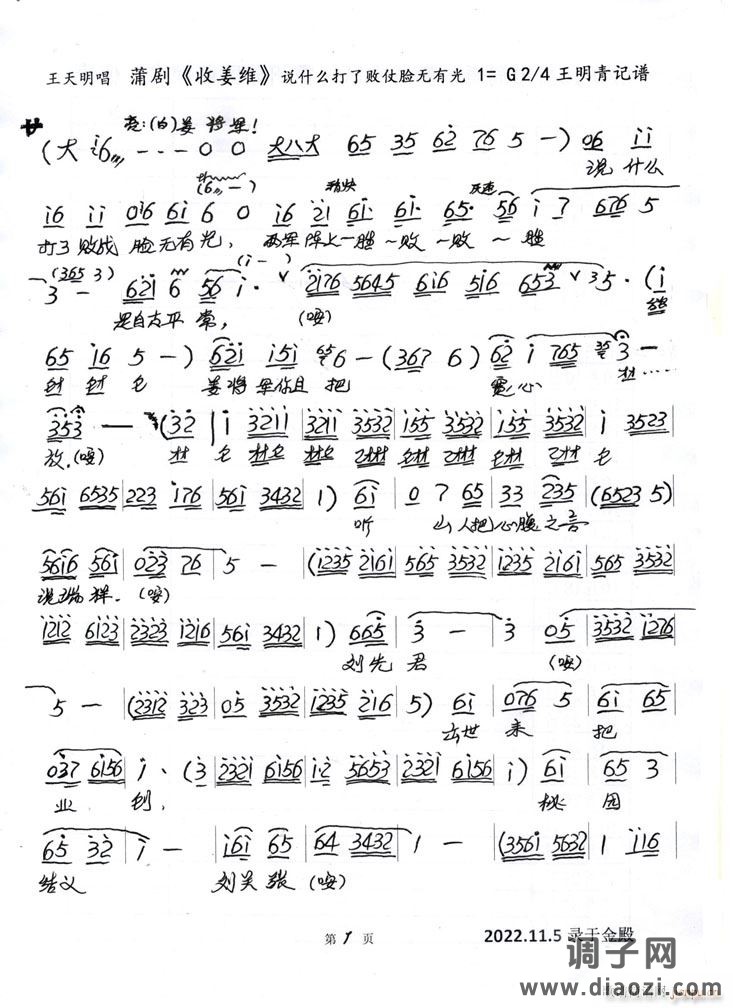 王天明唱 蒲剧《收姜维》说什么打了败仗脸无有光 1= G 2/4 王明青记谱
白:(白)姜将军!
(大 i6 - - - 0 0 大八大 65 35 62 76 5 -) 06 ii
说 什么
i6 ii 0i6 6i 6 0 i6 2i 6i· 6i· 65· 56 i 7 676 5
打了败仗 脸无有光, 两军阵上一胜~败~败~胜
3 - 62i 6 56 i· 2i76 5645 6i6 5i6 653 35· (i
是自古平常, (哎)
65 i6 5 -) 62i i5i 6 - (367 6) 62 i 765 3 -
姜将军你且 把 宽心
353 - (32 | i 32ii | 32ii 3532 | i55 3532 | i55 3532 | i 3523
放.(哎)
56i 6535 | 223 i76 | 56i 3432 | 1) 6i | 0 7 65 | 33 235 | (6523 5)
听 山人把心腹之言
56i6 56i | 0323 76 | 5 - | (i235 2i6i | 565 3532 | i235 2i6i | 565 3532
说端祥.(哎)
i2i2 6i23 | 2323 i2i6 | 56i 3432 | 1) 665 | 3 - | 3 05 | 3532 i276
刘先 君 (哎)
5 - | (2312 323 | 05 3532 | i235 2i6 | 5) 6i | 076 5 | 6i 65
去世 来 把
037 6i56 | i· (3 | 232i 6i56 | i·2 5653 | 232i 6i56 | i) 6i | 65 3
业 创, 桃 园
65 32 | i - | i6i 65 | 64 3432 | 1 - | (356i 5632 | 1 ii6
结义 刘关张(哎)
第 1 页
2022.11.5 录于金殿
调子网
www.diaozi.com